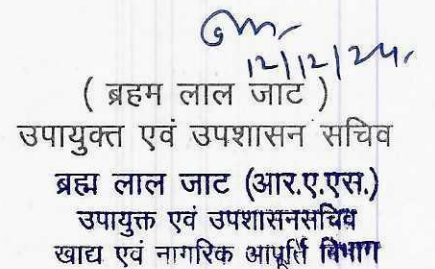 12/12/24
( ब्रहम लाल जाट )
उपायुक्त एवं उपशासन सचिव
ब्रह्म लाल जाट (आर.ए.एस.)
उपायुक्त एवं उपशासनसचिव
खाद्य एवं नागरिक आपूर्ति विभाग